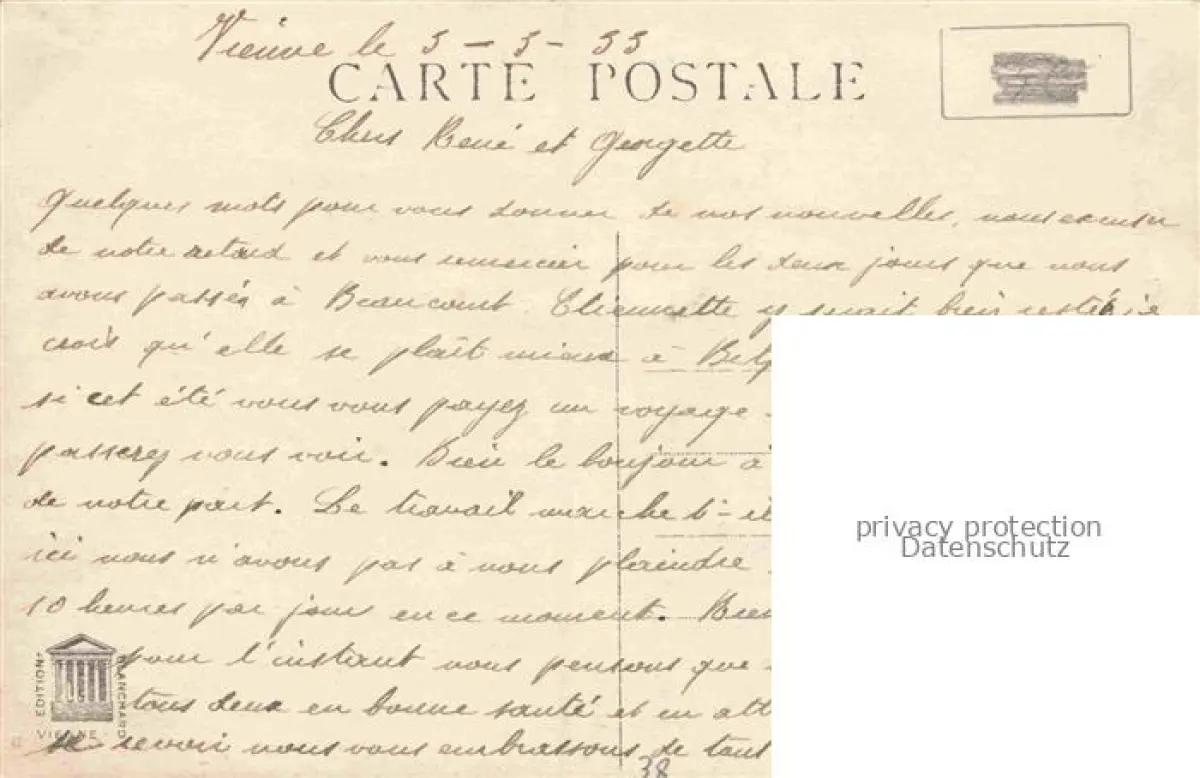 Vienne le 5-5-33
CARTE POSTALE
Chers René et Georgette
Quelques mots pour vous donner de nos nouvelles, nous excuser
de notre retard et vous remercier pour les deux jours que nous
avons passés à Beaucourt. Etiennette y serait bien restée je
crois qu'elle se plaît mieux à
si cet été vous vous payez un voyage
passerez nous voir. Bien le bonjour à
de notre part. Le travail marche t-il
ici nous n'avons pas à nous plaindre
10 heures par jour en ce moment. Bien
pour l'instant nous pensons que
tous deux en bonne santé et en att
se revoir nous vous embrassons de tous
38
EDITION BLANCHARD
VIENNE
privacy protection
Datenschutz